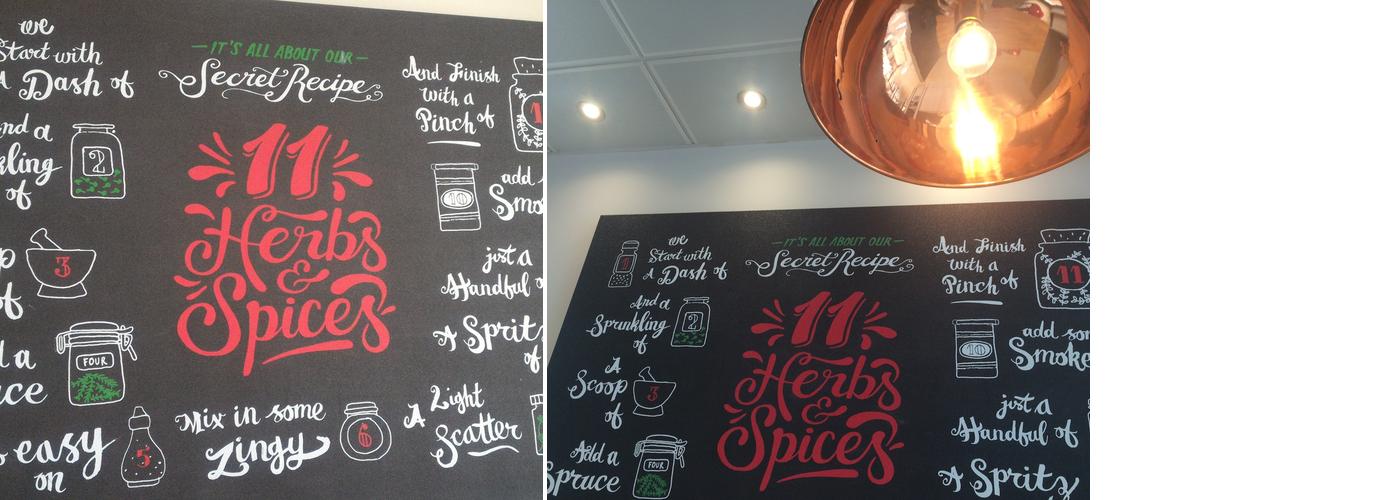 we
Start with
A Dash of
And a
kling
of
3
of
a
uce
FOUR
easy
on
5
2
— IT'S ALL ABOUT OUR —
Secret Recipe
11
Herbs
&
Spices
Mix in some
Zingy
6
And Finish
with a
Pinch of
10
add
Smo
just a
Handful o
A Spritz
of
A Light
Scatter
1
we
Start with
A Dash of
And a
Sprinkling
of
2
A
Scoop
of
3
Add a
Spruce
FOUR
— IT'S ALL ABOUT OUR —
Secret Recipe
11
Herbs
&
Spices
And Finish
with a
Pinch of
11
10
add som
Smoke
just a
Handful of
A Spritz